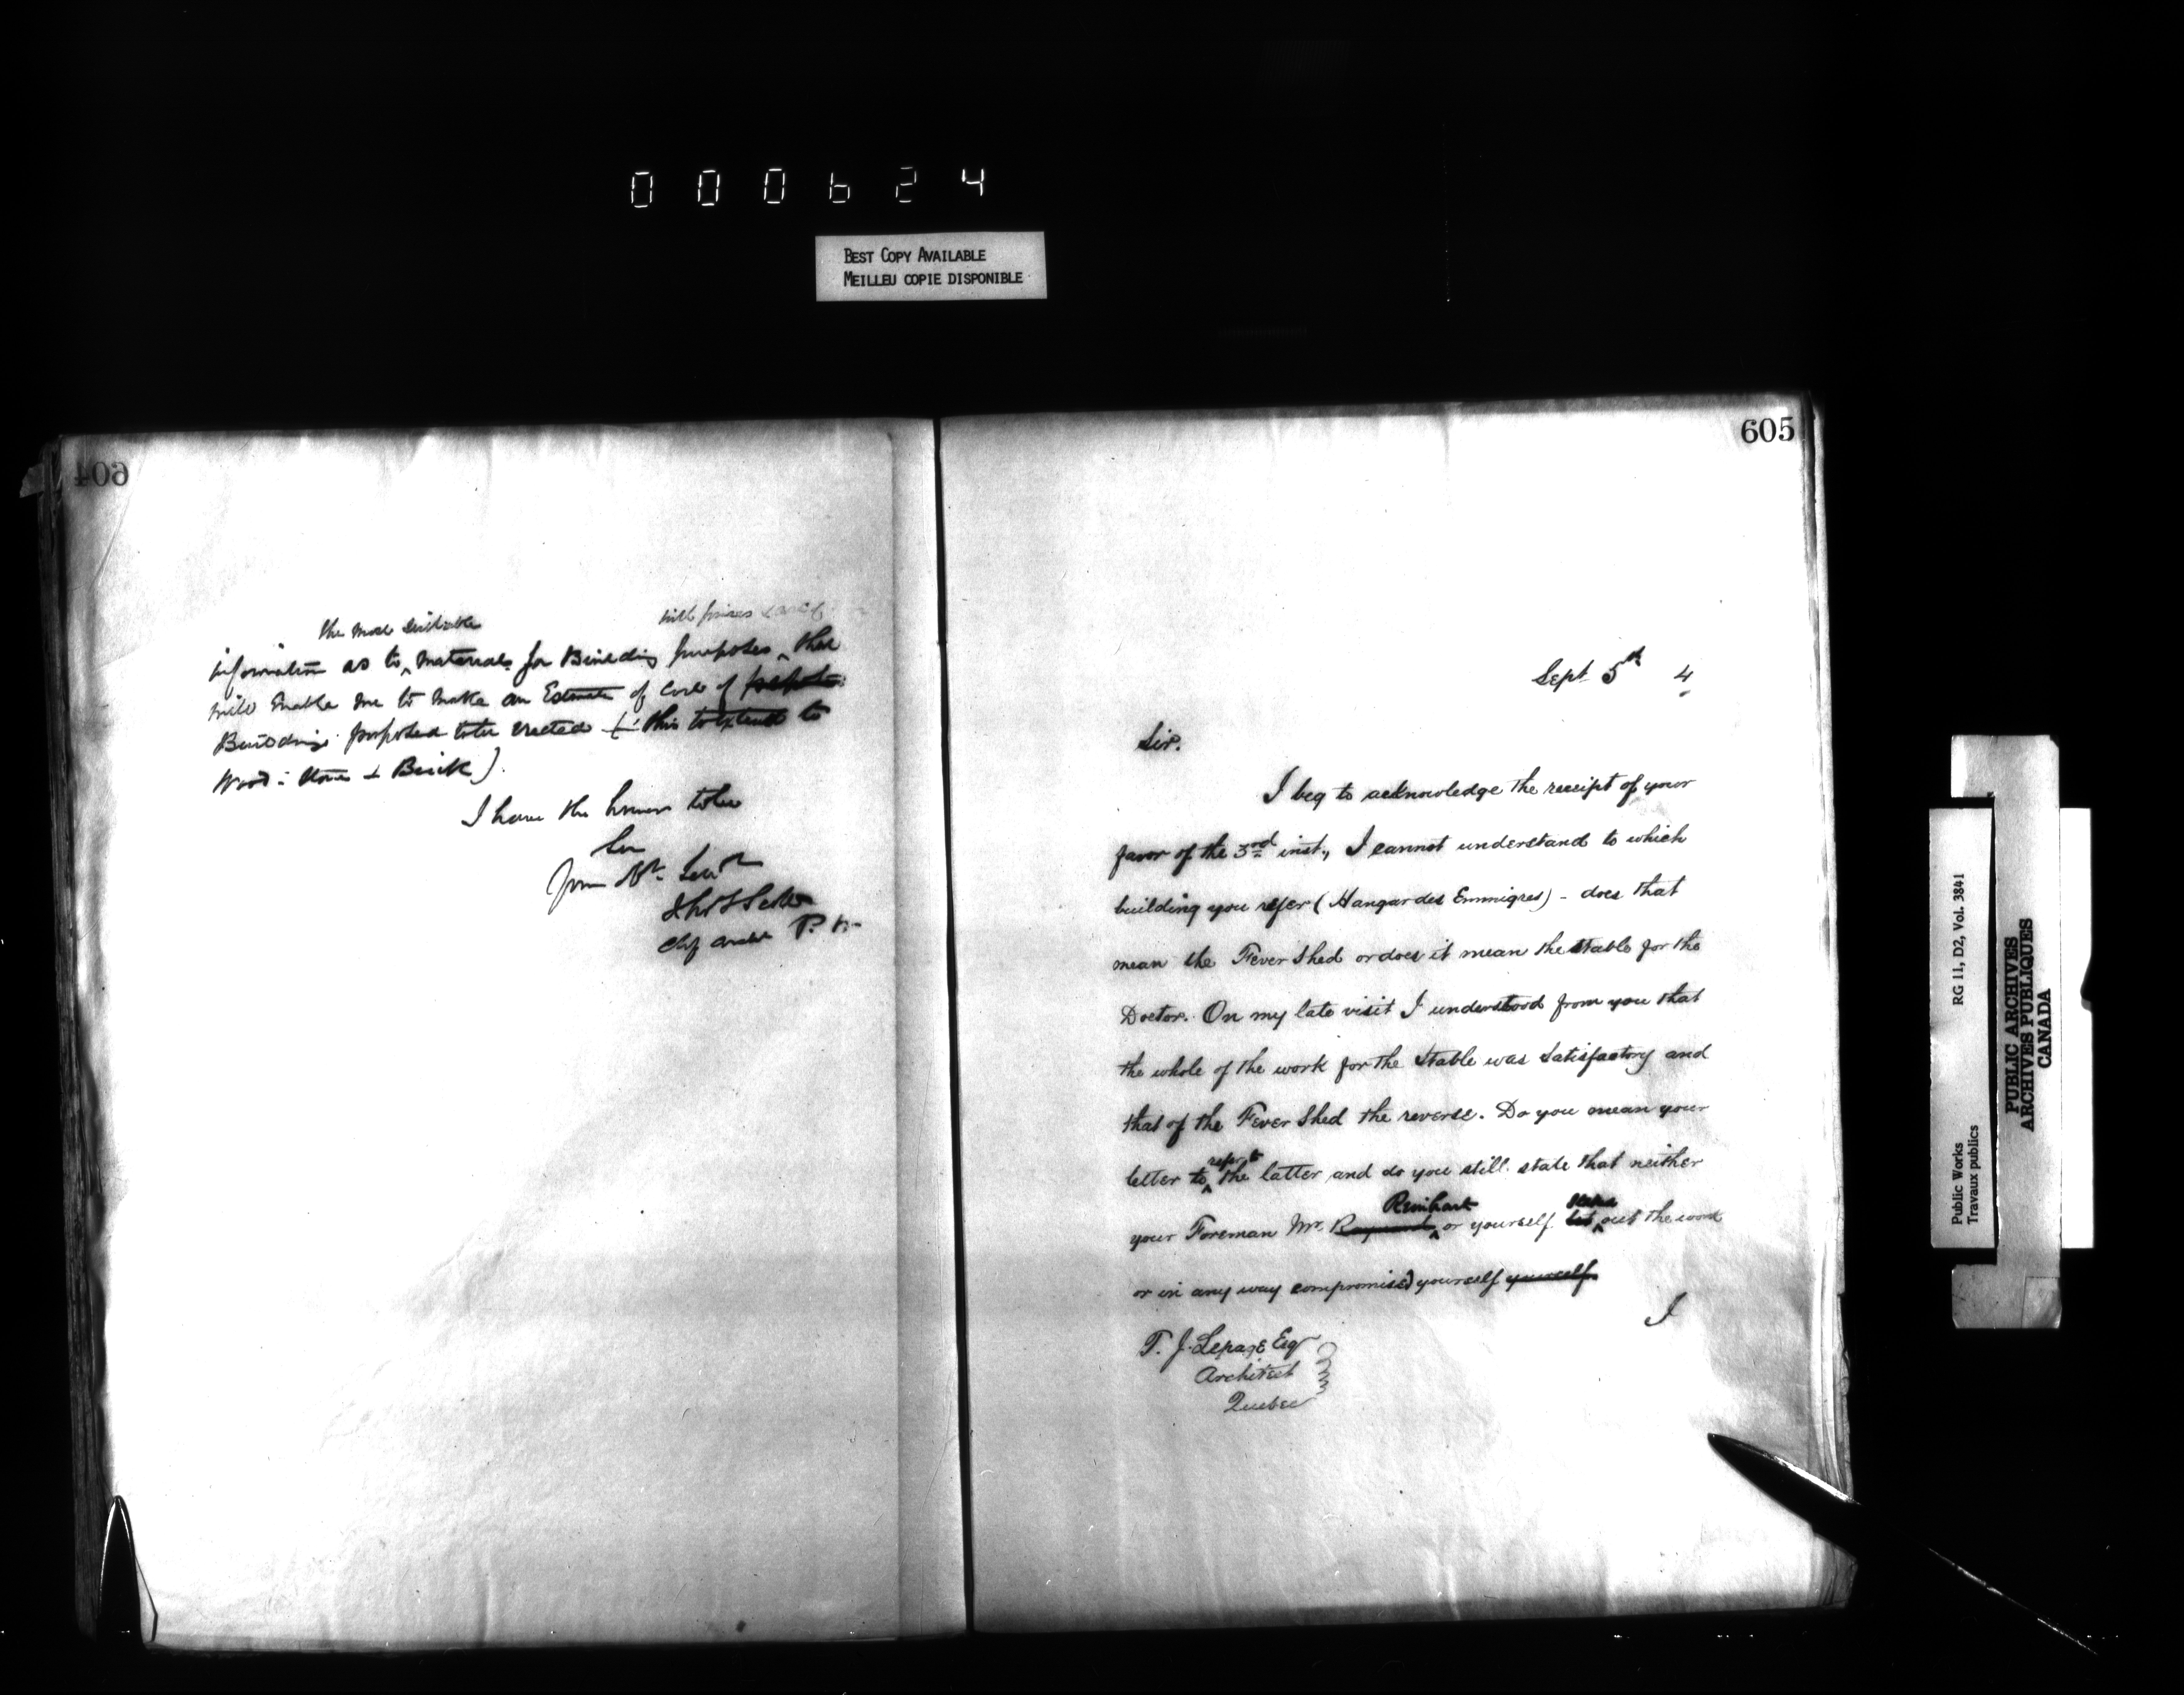 000624
BEST COPY AVAILABLE
MEILLEU COPIE DISPONIBLE
604
the most suitable
with prices
information as to materials for Building purposes that
will enable me to make an Estimate of Cost of
Buildings proposed to be erected this to extend to
Wood: Stone & Brick).
I have the honor to be
Sir
Your Obt. Servt
Thos S Scott
Chf Archt P. W.
605
Sept 5th 4
Sir.
I beg to acknowledge the receipt of your
favor of the 3rd inst., I cannot understand to which
building you refer (Hangar des Emmigres) - does that
mean the Fever Shed or does it mean the Stable for the
Doctor. On my late visit I understood from you that
the whole of the work for the Stable was Satisfactory and
that of the Fever Shed the reverse. Do you mean your
refer to
letter to the latter and do you still state that neither
Reinhart
your Foreman Mr. or yourself out the work
or in any way compromised yourself yourself
I
T. J. Lepage Esq
Architect
Quebec
Public Works
Travaux publics
RG 11, D2, Vol. 3841
PUBLIC ARCHIVES
ARCHIVES PUBLIQUES
CANADA